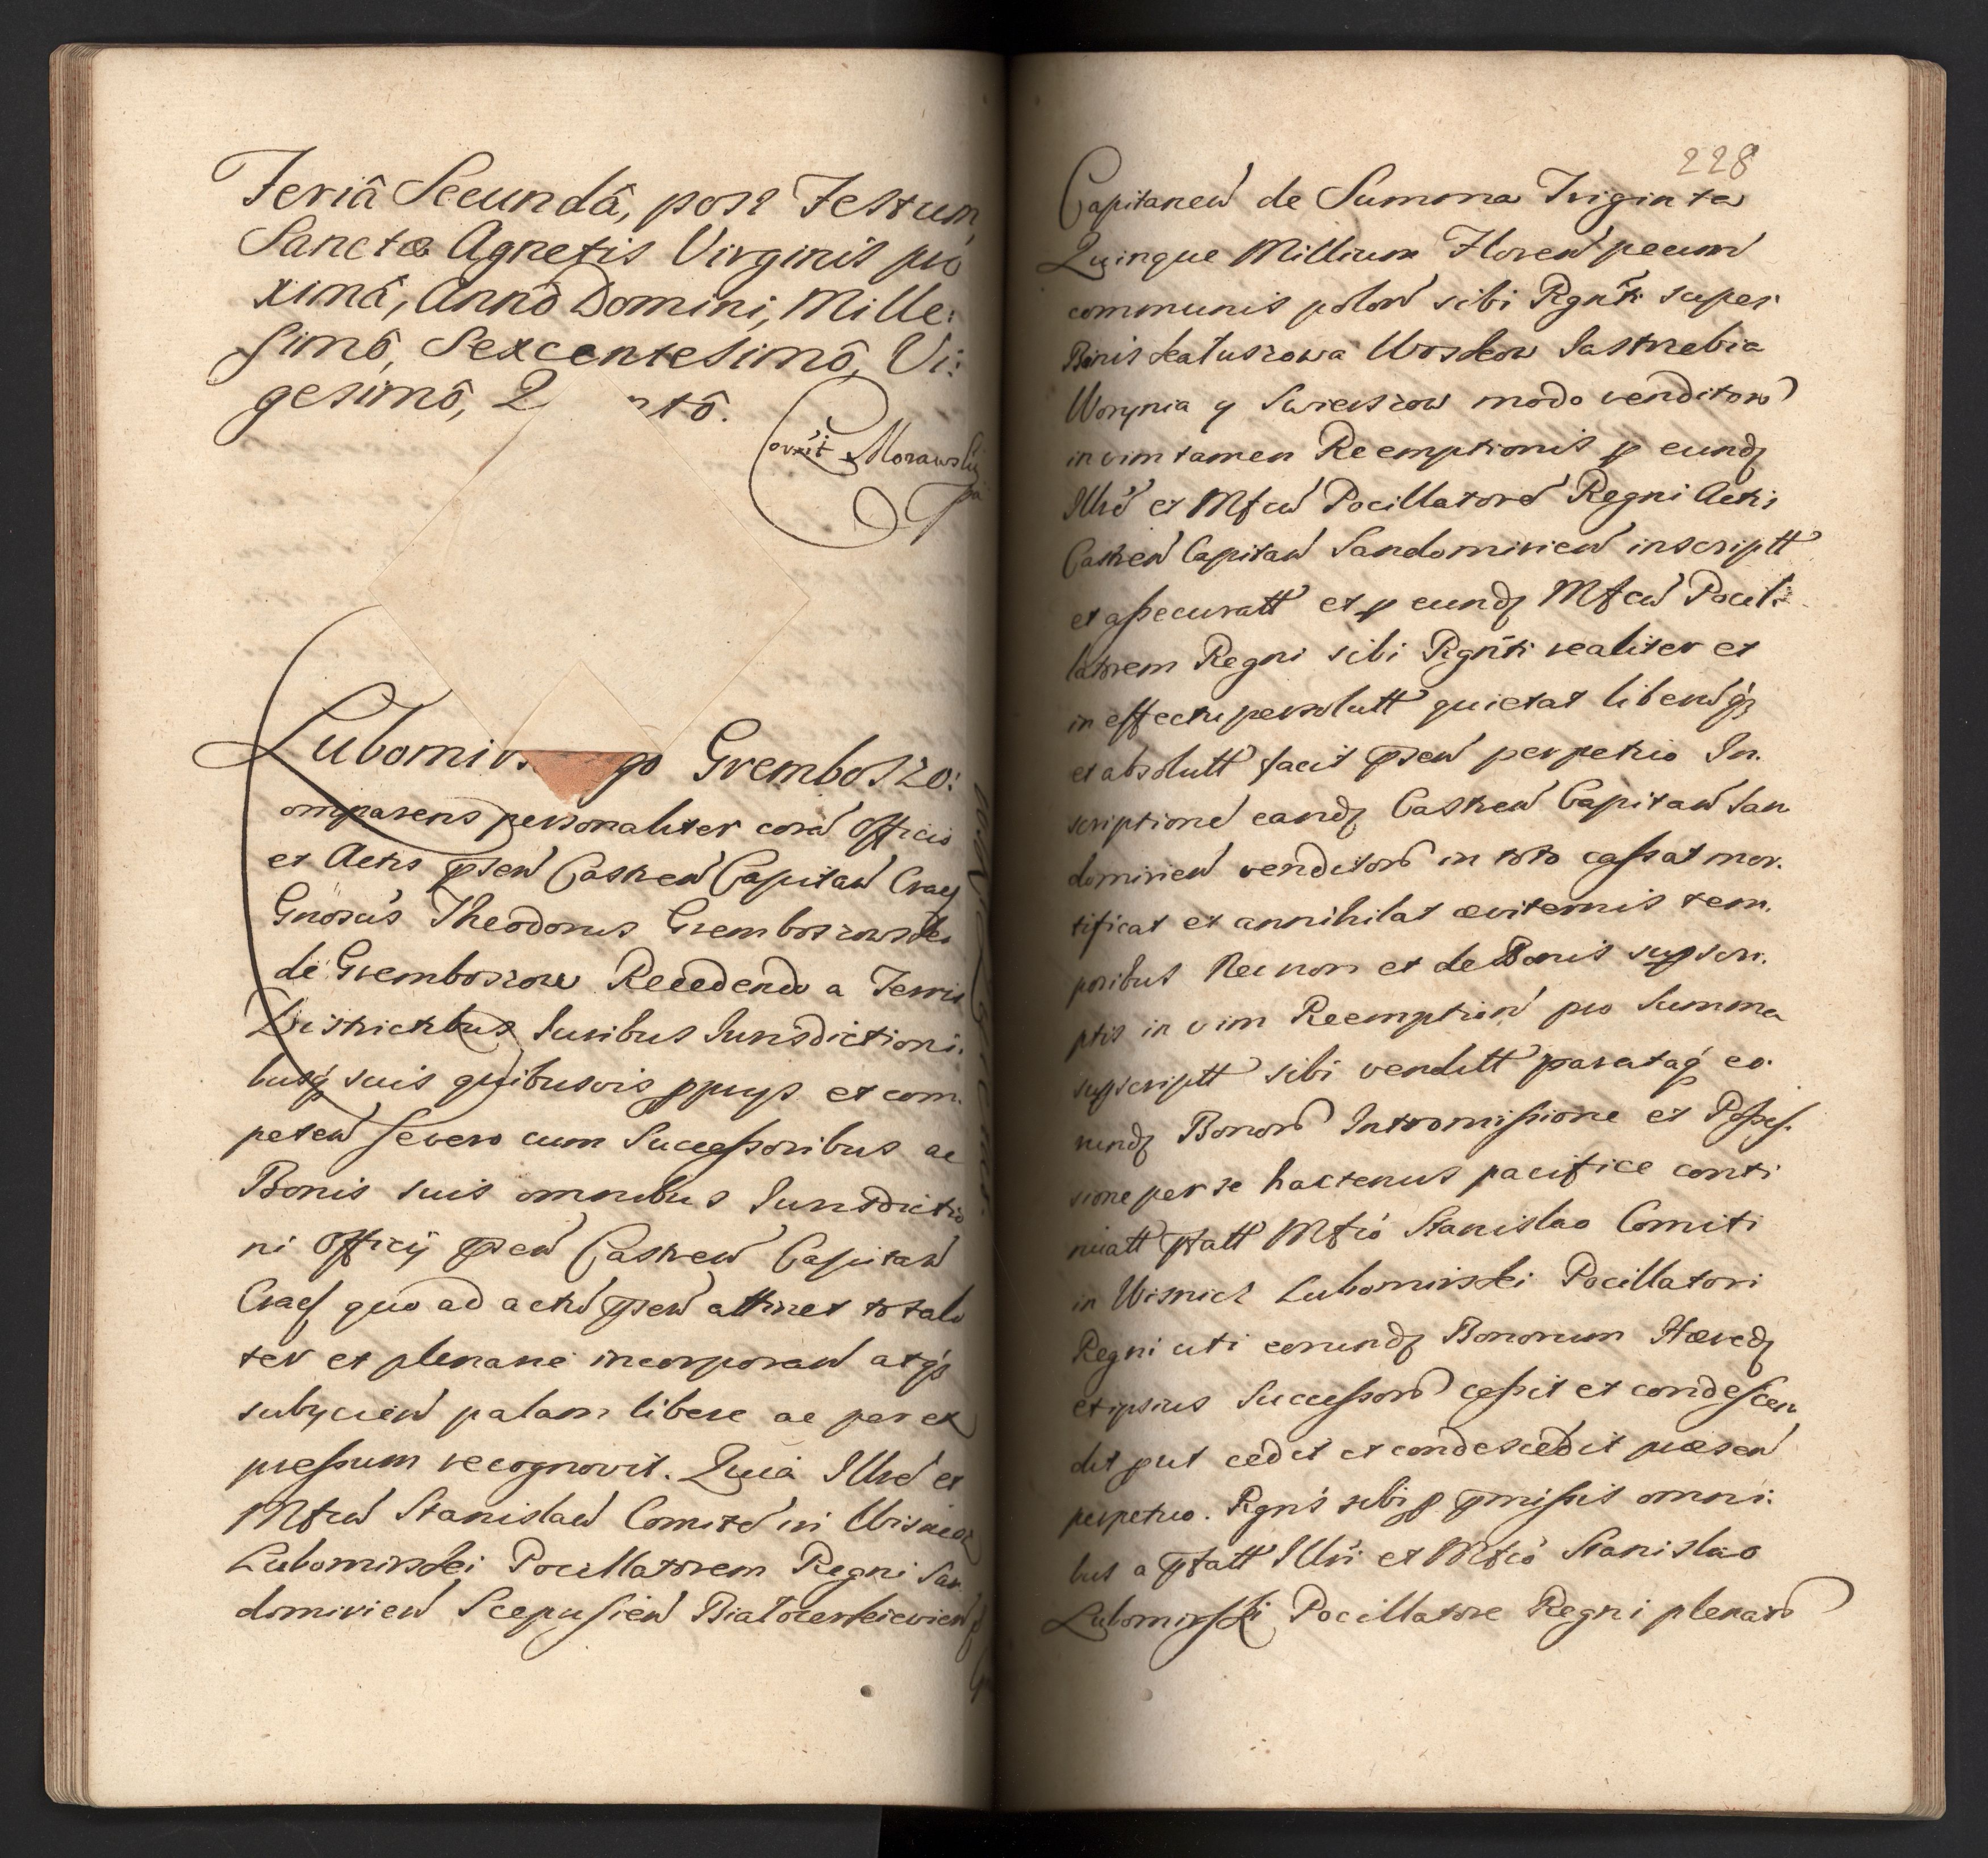 Feriâ Secundâ, post Festum
Sanctæ Agnetis Virginis pro
ximâ, Annô Domini, Mille:
simô, Sexcentesimô, Vi:
gesimô, Q ntô.
Corrit Morawsky
Lubomirs go Gremboszo:
Comparens personaliter corã Officio
et Actis pñsen Castren Capitan Crac
Gnosus Theodorus Gremboszowski
de Gremboszow Recedendo a Terris
Districtibus Iuribus Iurisdictioni:
busq suis quibusvis ppuys et com:
peten se vero cum Successoribus ac
Bonis suis omnibus Iurisdictio
ni Officij pñsen Castren Capitan
Crac quo ad actũ pñsen attinet totali
ter et plenarie incorporan atq
subycien palam libere ac per ex
pressum recognovit. Quia Illrẽ et
Mfcũ Stanislaũ Comitẽ in Wisnicz
Lubomirski Pocillatorem Regni San
domirien Scepusien Białocerkievien
228
Capitaneũ de Summa Triginta
Quinque Millium Floren pecun
communis polon sibi Rgnti super
Bonis Kałuszowa Woskow Jastrzebia
Worynia y Swierszow modo venditorũ
in vim tamen Reemptionis p eundz
Illrẽ et Mfcũ Pocillatorẽ Regni Actis
Castren Capitan Sandomirien inscriptt
et assecuratt et p eundz Mfcũ Pocil:
latorem Regni sibi Rgnti realiter et
in effectu persolutt quietat liberũq
et absolutt facit pñsen perpetuo In:
scriptionẽ eandz Castren Capitan San
domirien venditorũ in toto cassat mor:
tificat et annihilat æviternis tem:
poribus Necnon et de Bonis supscri:
ptis in vim Reemption pro Summa
supscriptt sibi venditt parataq eo:
rundz Bonorũ Intromissione et Posses:
sione per se hactenus pacifice conti
nuatt pfatt Mfcó Stanislao Comiti
in Wisnicz Lubomirski Pocillatori
Regni uti eorundz Bonorum Hæredz
et ipsius Successorũ cessit et condescen
dit put cedit et condescedit præsen
perpetuo. Rgns sibi p pmissis omni:
bus a pfatt Illri et Mfcó Stanislao
Lubomirski Pocillatore Regni plenarõ